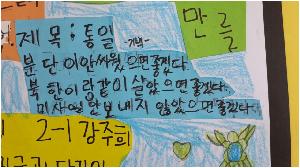 제목: 통일
만들
분단이안싸웠으면좋겠다
북한이랑같이살았으면좋겠다.
미사일 안보내지 않았으면좋겠다.
2-1 강주희